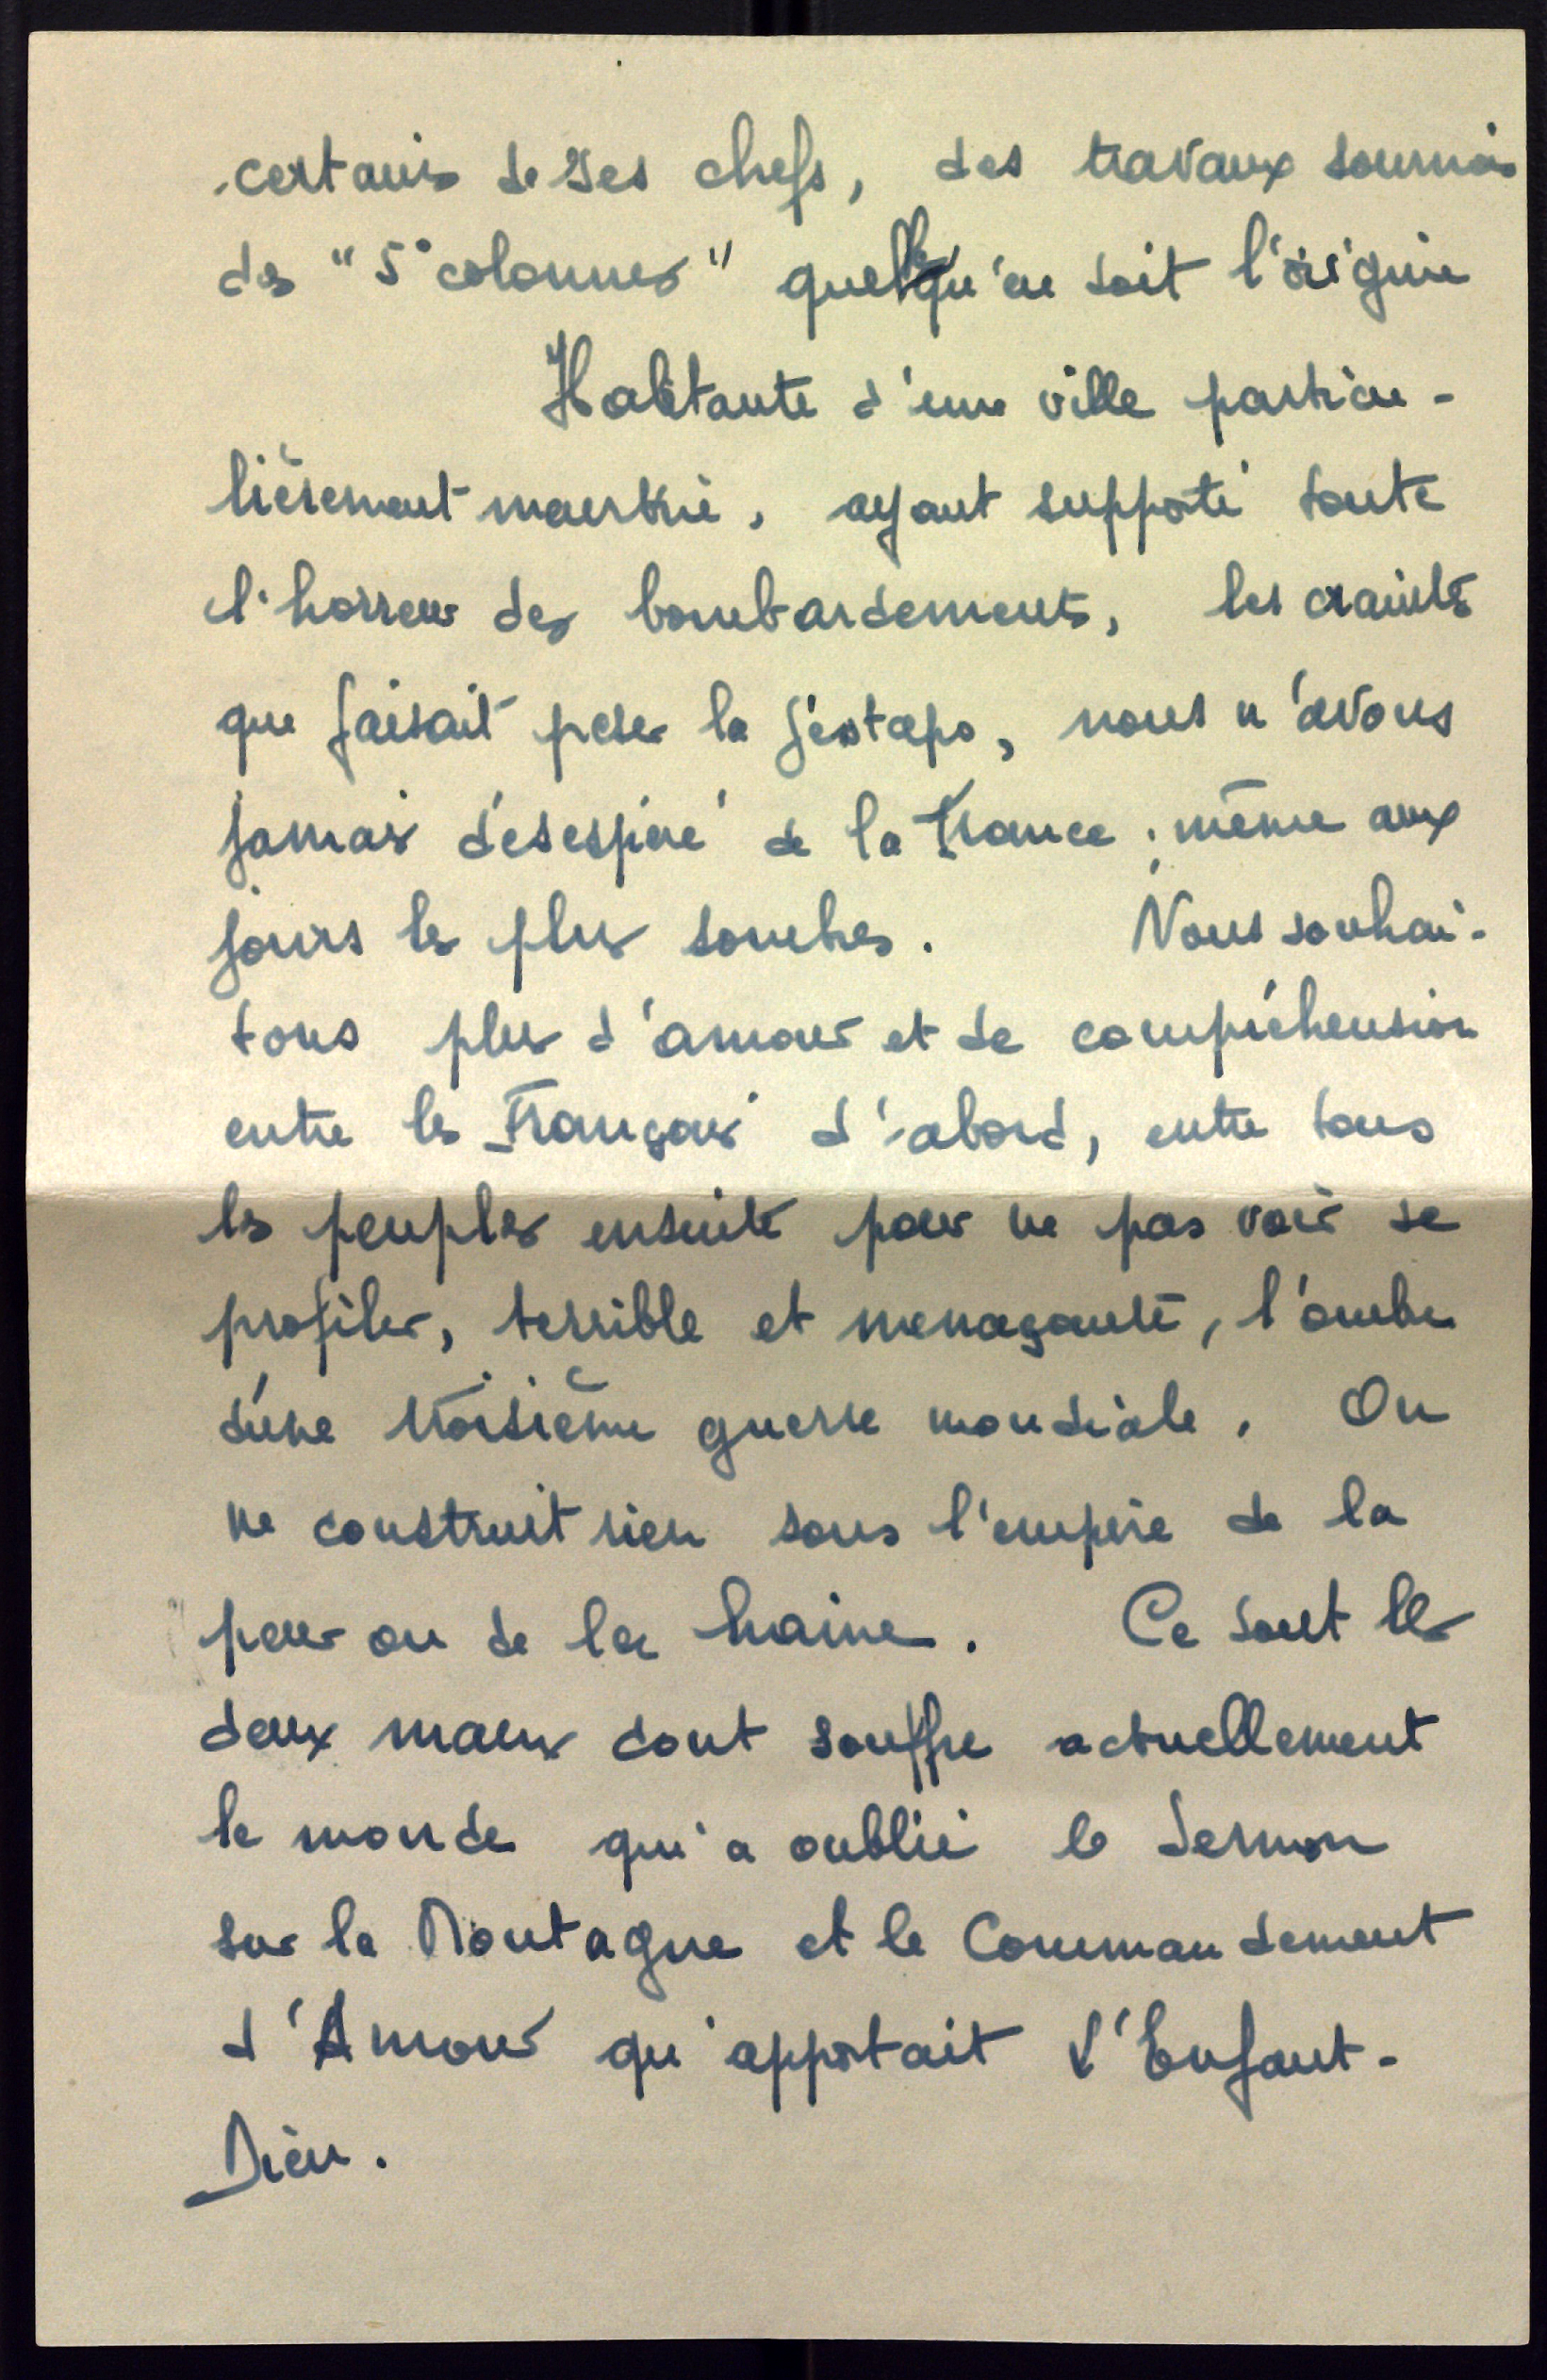 certains de ses chefs, des travaux sournois
des "5° colonnes" quelle qu'en soit l'origine
Habitante d'une ville particu-
lièrement meurtrie, ayant supporté toute
l'horreur des bombardements, les craintes
que faisait peser la géstapo, nous n'avons
jamais désespéré de la France, même aux
jours les plus sombres. Nous souhai-
tons plus d'amour et de compréhension
entre les Français d'abord, entre tous
les peuples ensuite pour ne pas voir se
profiler, terrible et menaçante, l'ombre
d'une troisième guerre mondiale. On
ne construit rien sous l'empire de la
peur ou de la haine. Ce sont les
deux maux dont souffre actuellement
le monde qui a oublié le Sermon
sur la Montagne et le Commandement
d'Amour qu'apportait l'Enfant-
Dieu.